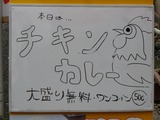 本日は…
チキン
カレー
大盛り無料・ワンコイン 50c